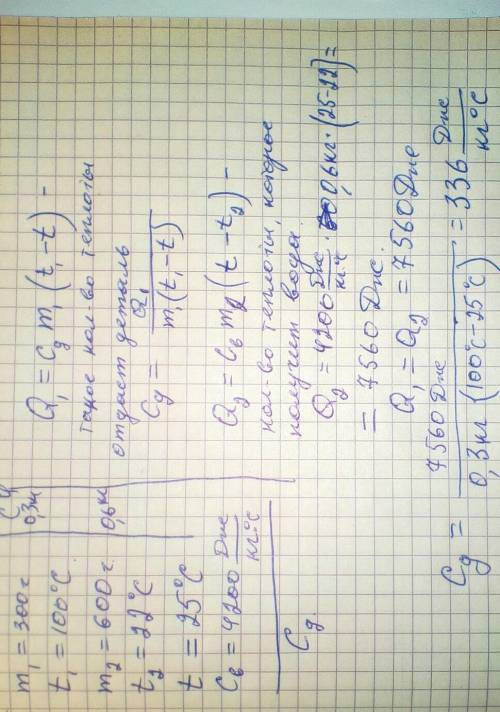 m₁ = 300 г
t₁ = 100°C
m₂ = 600 г.
t₂ = 22°C
t = 25°C
Cв = 4200 Дж/кг·°C
Cд
СИ
0,3 кг
0,6 кг
Q₁ = Cд m₁ (t₁ - t) -
такое кол-во теплоты
отдаст деталь
Cд = Q₁/m₁(t₁ - t)
Q₂ = Cв m₂ (t - t₂) -
кол-во теплоты, которое
получит вода
Q₂ = 4200 Дж/кг·°C · 0,6 кг · (25-22) =
= 7560 Дж
Q₁ = Q₂ = 7560 Дж
Cд = 7560 Дж/0,3 кг (100°C - 25°C) = 336 Дж/кг°C